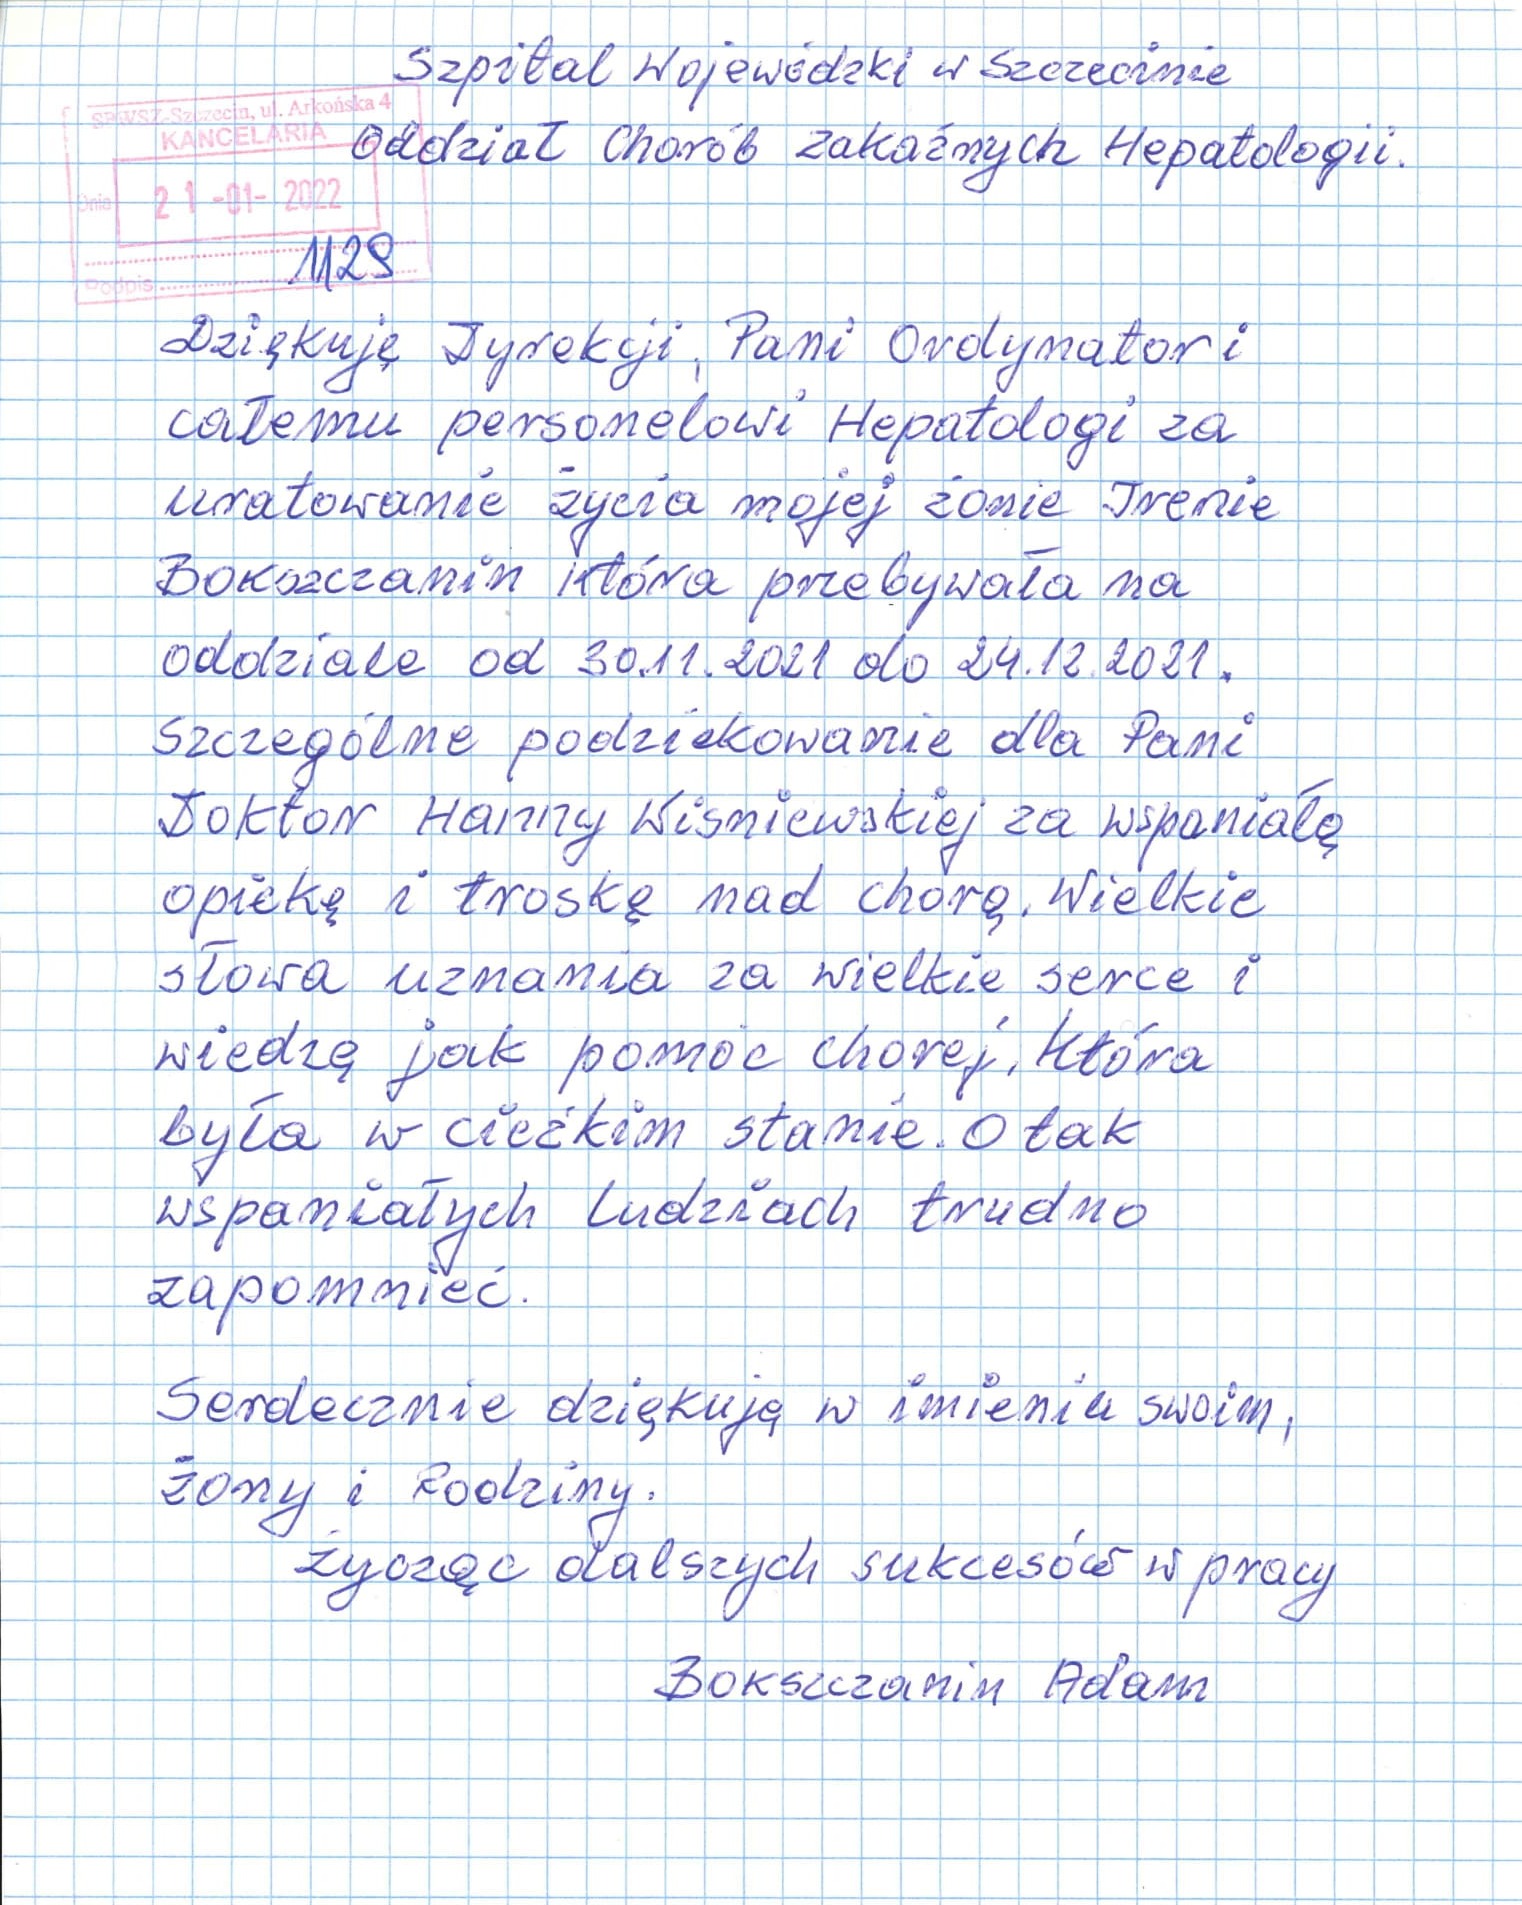 Szpital Wojewódzki w Szczecinie
SPWSZ-Szczecin, ul. Arkońska 4
KANCELARIA
Oddział Chorób Zakaźnych Hepatologii.
Dnia 21-01-2022
1129
Podpis
Dziękuję Dyrekcji, Pani Ordynator i
całemu personelowi Hepatologi za
uratowanie życia mojej żonie Irenie
Bokszczanin która przebywała na
oddziale od 30.11.2021 do 24.12.2021.
Szczególne podziekowanie dla Pani
Doktor Hanny Wisniewskiej za wspaniałą
opiekę i troskę nad chorą. Wielkie
słowa uznania za wielkie serce i
wiedzę jak pomóc chorej, która
była w cieżkim stanie. O tak
wspaniałych ludziach trudno
zapomnieć.
Serdecznie dziękują w imieniu swoim,
żony i Rodziny.
życząc dalszych sukcesów w pracy
Bokszczanin Adam